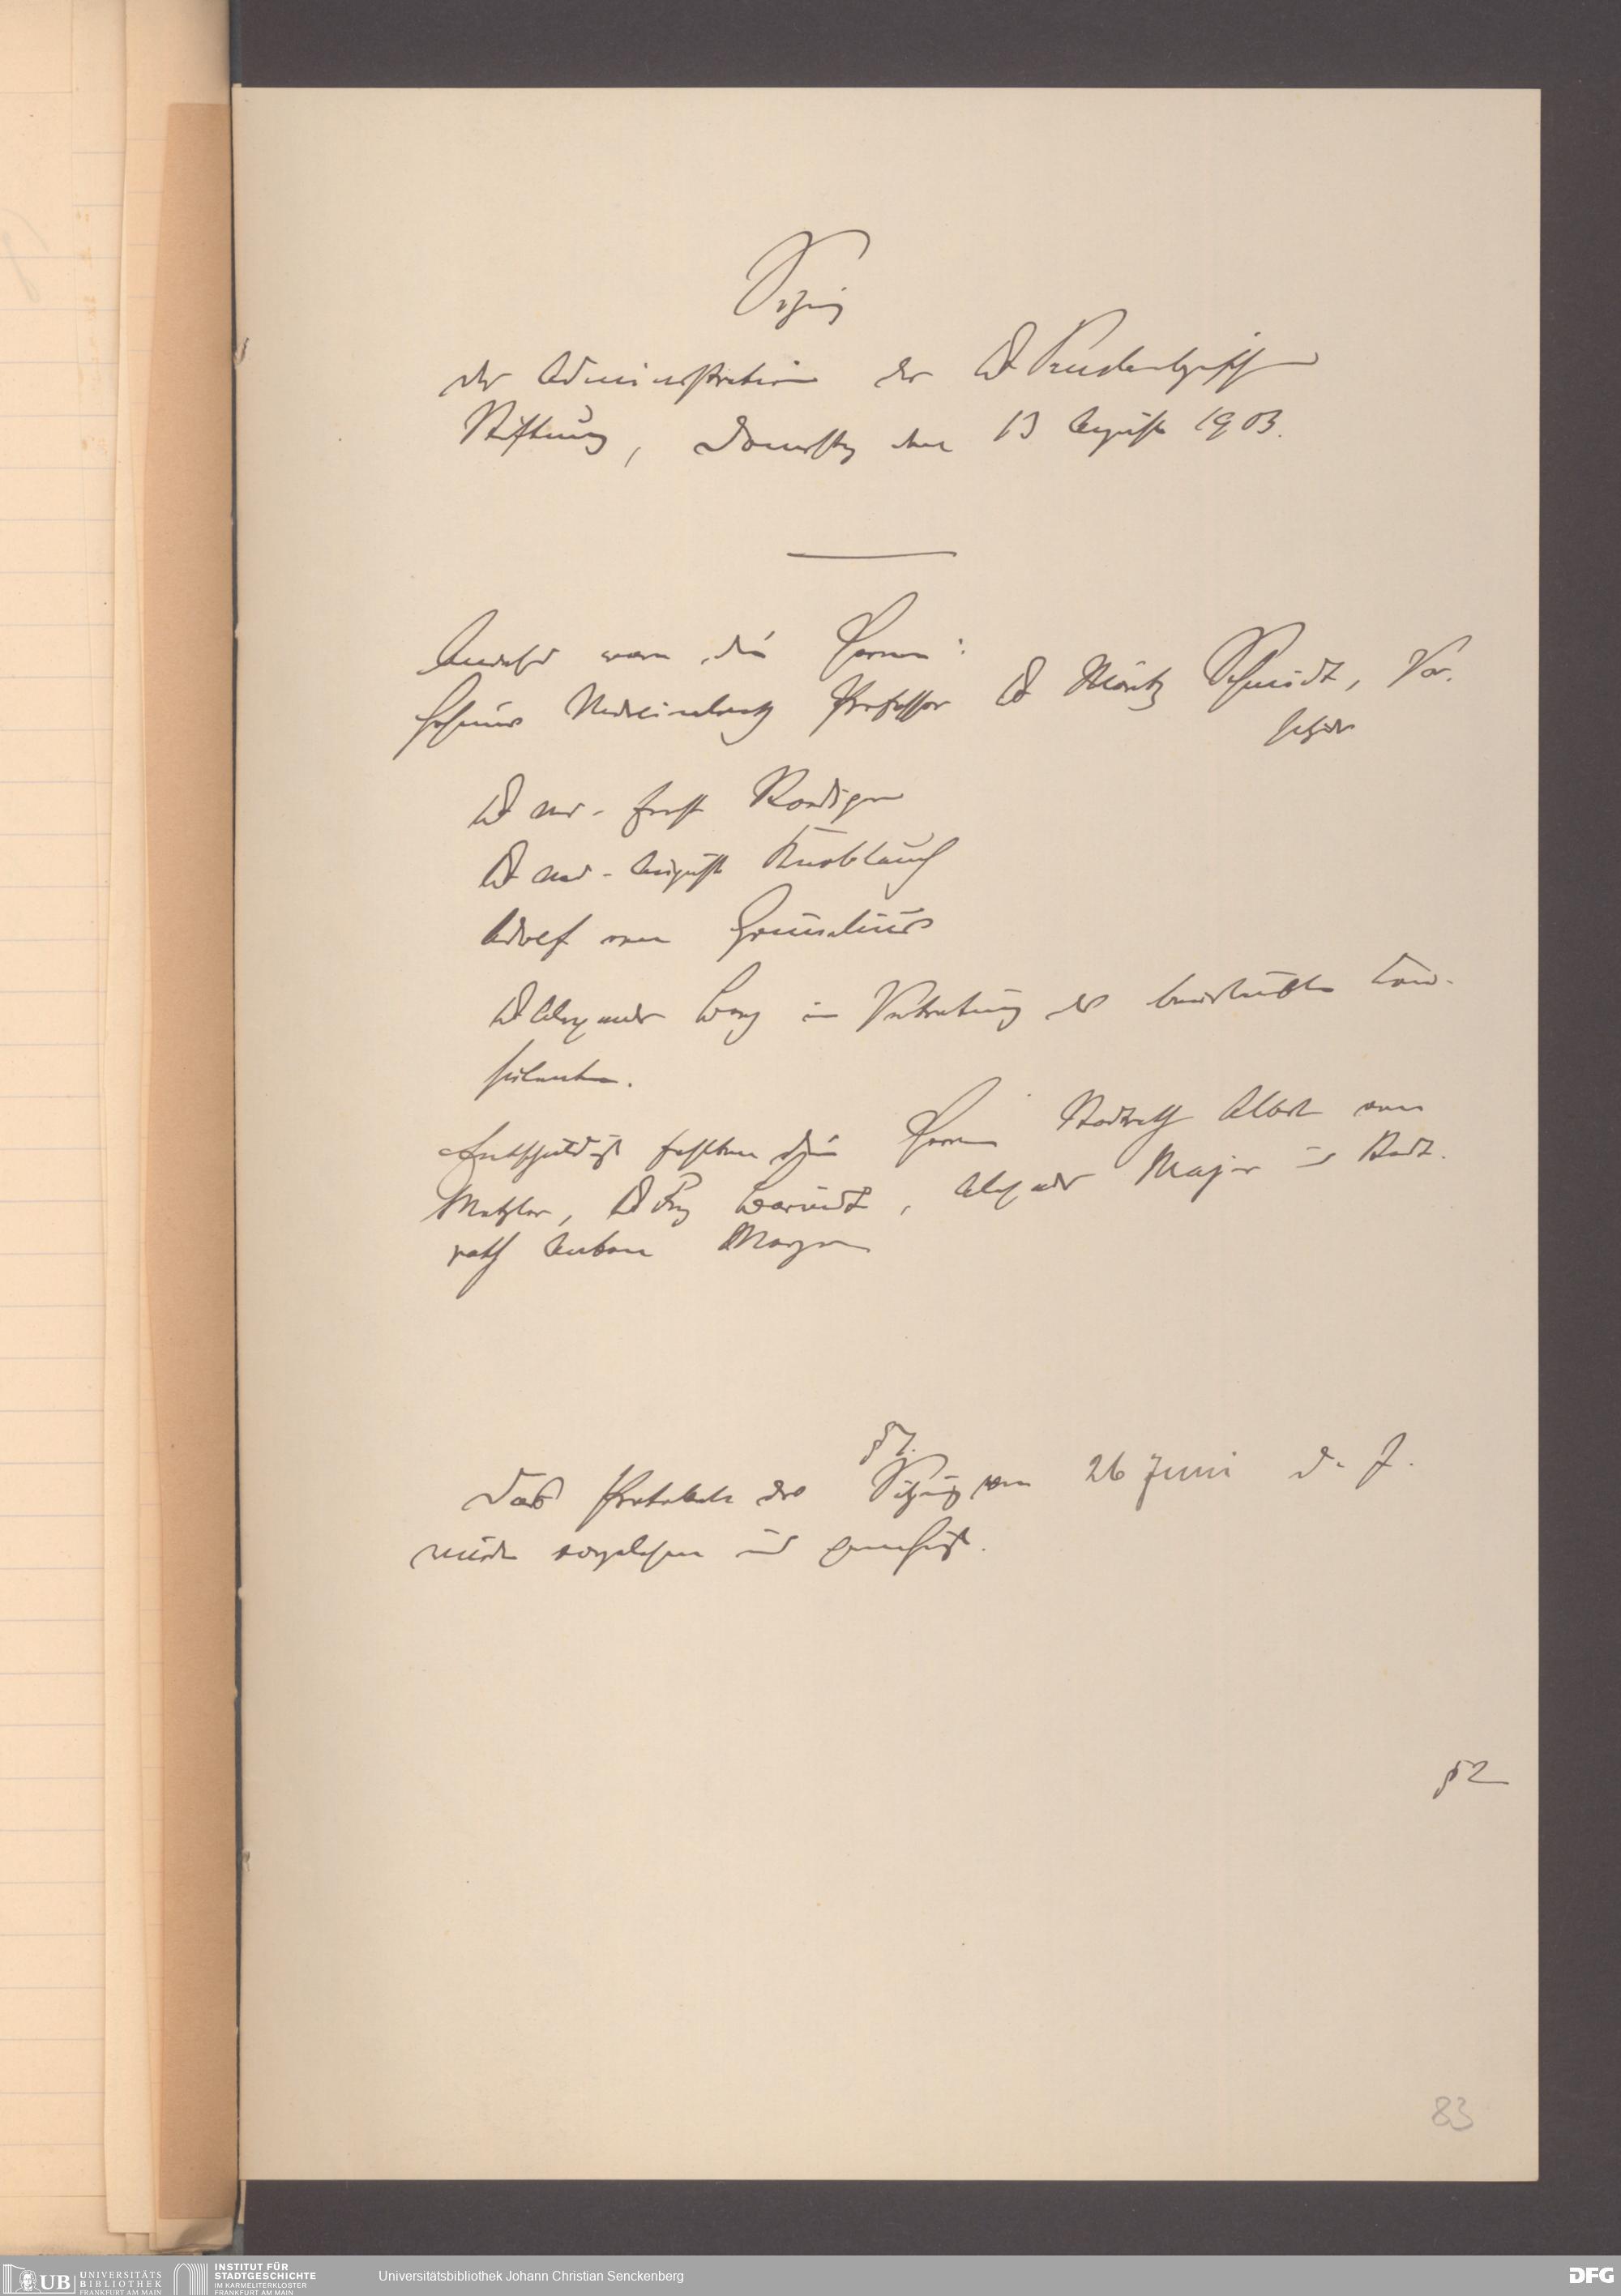 Sitzung
der Administration der Dr Senckenbergischen
Stiftung, Donnerstag den 13 August 1903.
Anwesend waren die Herren:
Geheimer Medicinalrath Professor Dr Moritz Schmidt, Vor-
sitzender
Dr med. Ernst Roediger
Dr med. August Knoblauch
Adolf von Grunelius
Dr Alexander Berg in Vertretung des beurlaubten Con-
sulenten.
Entschuldigt fehlten die Herren Stadtrath Albert von
Metzler, Dr Fritz Berndt, Alexander Majer und Stadt-
rath Anton Meyer
§ 1.
Das Protokoll der Sitzung vom 26 Juni d. J.
wurde vorgelesen und genehmigt.
§ 2
83
UB UNIVERSITÄTS
BIBLIOTHEK
FRANKFURT AM MAIN
INSTITUT FÜR
STADTGESCHICHTE
IM KARMELITERKLOSTER
FRANKFURT AM MAIN
Universitätsbibliothek Johann Christian Senckenberg
DFG